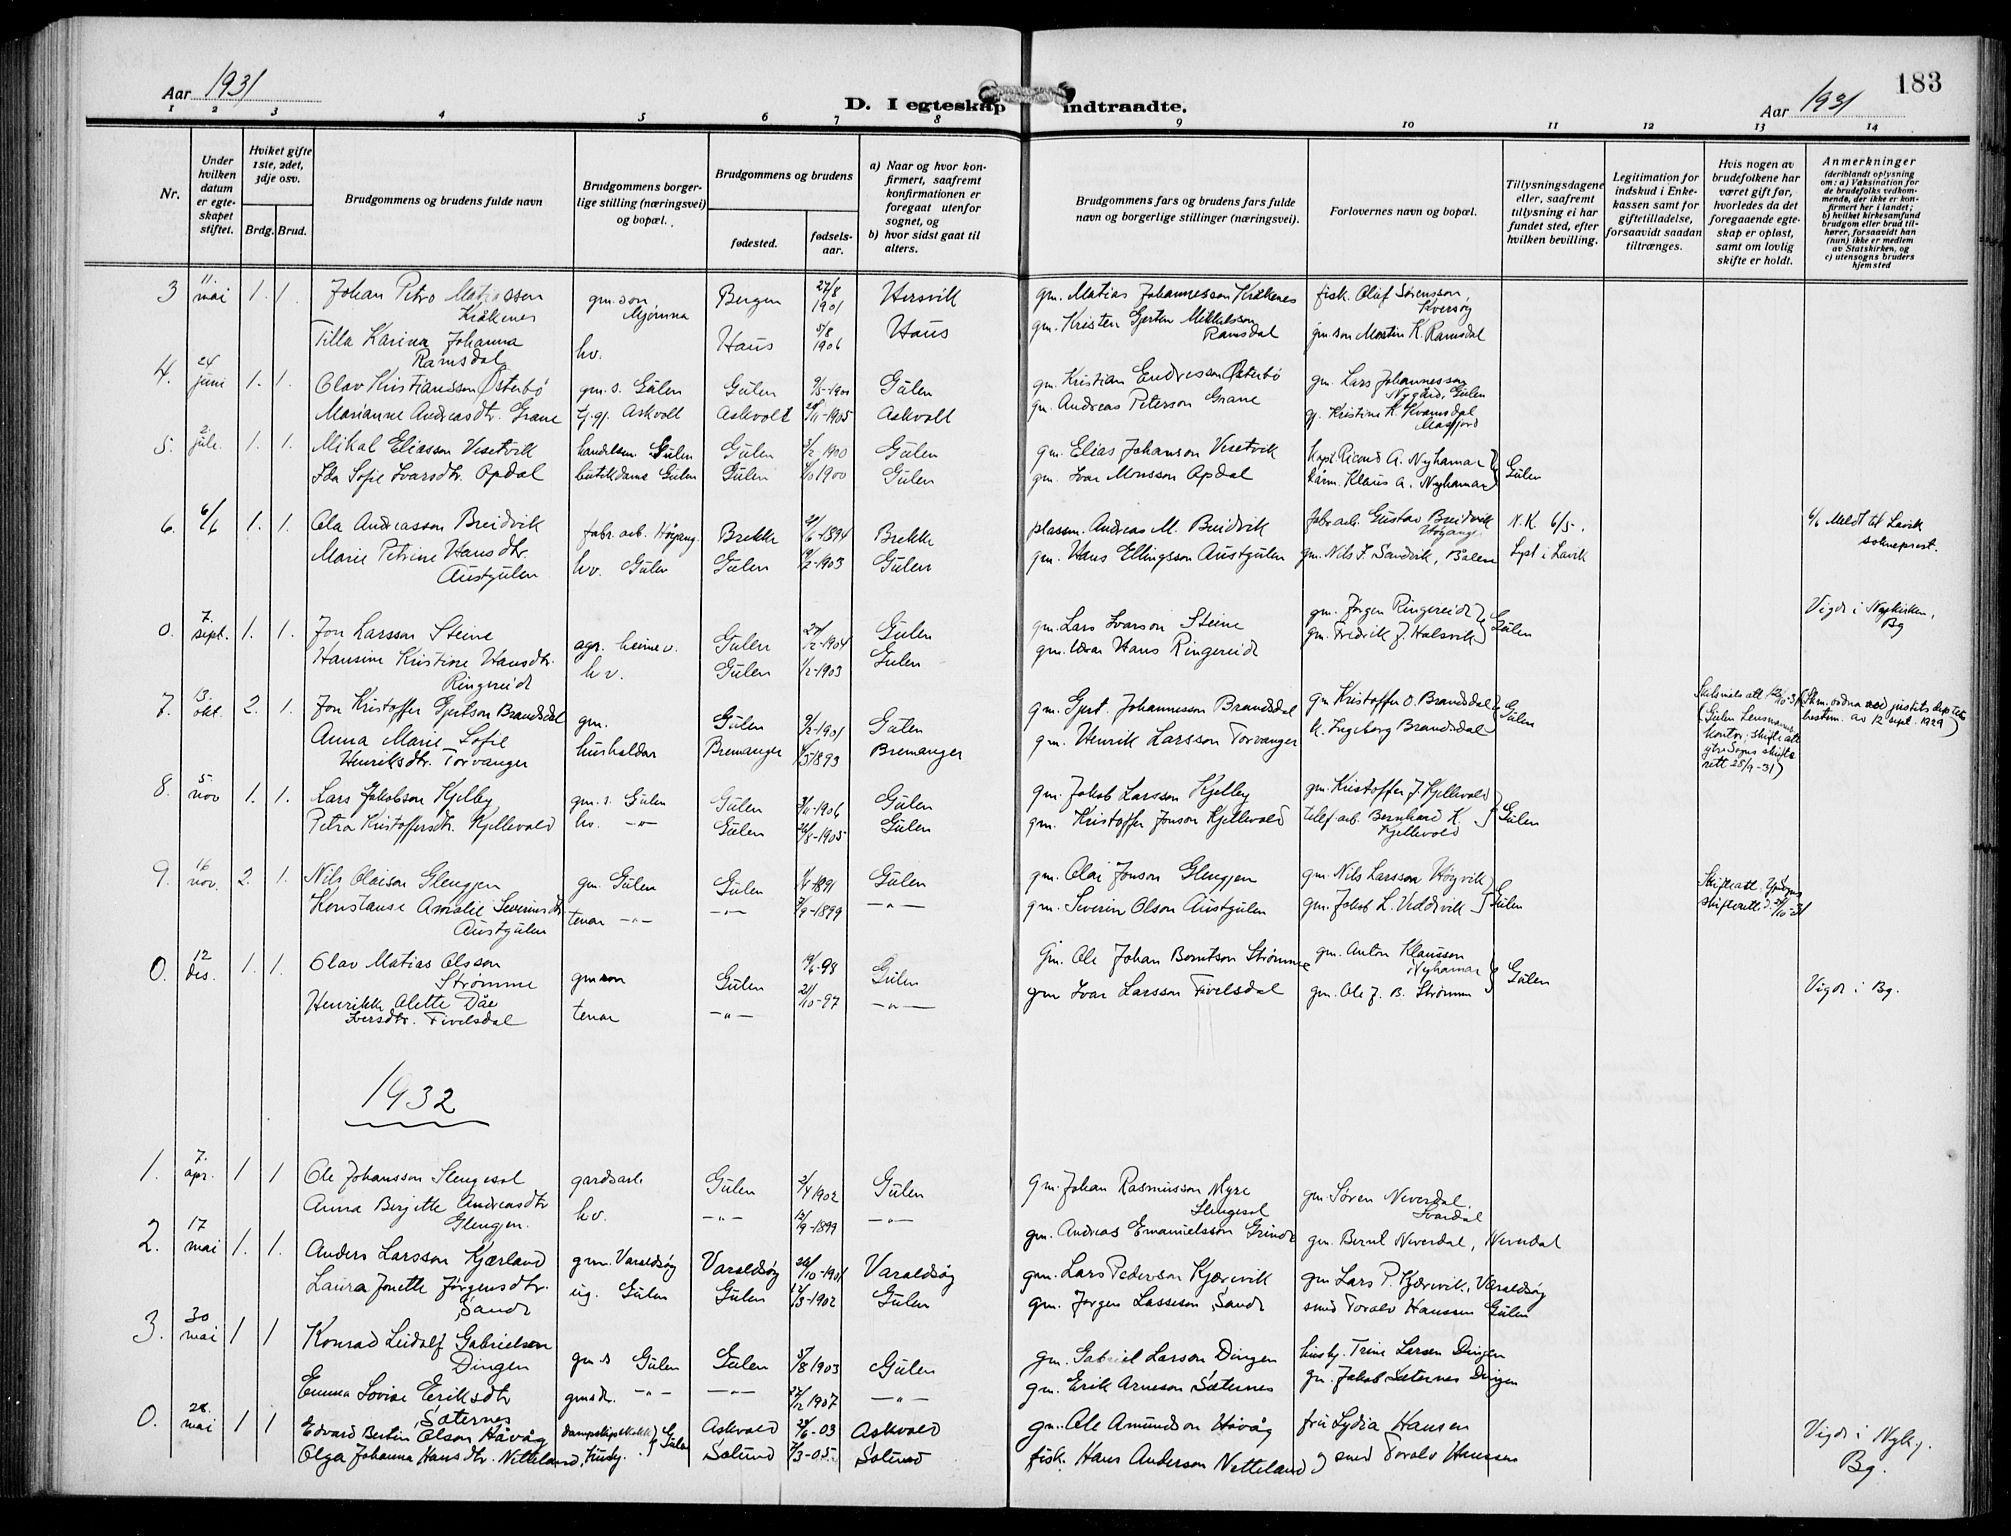 Aar 1931
D. I egteskap indtraadte.
Aar 1931
183
1 2 3 4 5 6 7 8 9 10 11 12 13 14
Nr.
Under hvilken datum er egteskapet stiftet.
Hviket gifte 1ste, 2det, 3dje osv.
Brdg. Brud.
Brudgommens og brudens fulde navn
Brudgommens borgerlige stilling (næringsvei) og bopæl.
Brudgommens og brudens
fødested.
fødselsaar.
a) Naar og hvor konfirmert, saafremt konfirmationen er foregaat utenfor sognet, og
b) hvor sidst gaat til alters.
Brudgommens fars og brudens fars fulde navn og borgerlige stillinger (næringsvei).
Forlovernes navn og bopæl.
Tillysningsdagene eller, saafremt tillysning ei har fundet sted, efter hvilken bevilling.
Legitimation for indskud i Enkekassen samt for giftetilladelse, forsaavidt saadan tiltrænges.
Hvis nogen av brudefolkene har været gift før, hvorledes da det foregaaende egteskap er opløst, samt om lovlig skifte er holdt.
Anmerkninger
(deriblandt oplysning om: a) Vaksination for de brudefolks vedkommende, der ikke er konfirmert her i landet; b) hvilket kirkesamfund brudgom eller brud tilhører, forsaavidt han (hun) ikke er medlem av Statskirken, og c) utensogns bruders hjemsted
3 11. mai 1. 1. Johan Petro Matiassen Kråkenes gm. son Mjømna Bergen 27/8 1901 Hersvik gm. Matias Johannesson Kråkenes fisk. Olaf Sørensson, Kversøy
Tilla Karina Johanna Ramsdal hv. Haus 5/8 1906 Haus gm. Kristen Gjerten Mikkelsson Ramsdal gm. son Morten K. Ramsdal
4. 24 juni 1. 1. Olav Kristiansson Østerbø gm. s. Gulen Gulen 9/5-1901 Gulen gm. Kristian Endresson Østerbø gm. Lars Johannesson Nygård, Gulen
Marianne Andreasdtr. Grane tj.gj. Askvoll Askvoll 11-1905 Askvoll gm. Andreas Peterson Grane gj. Kristine K. Kvamsdal Masfjord
5. 2. juli. 1. 1. Mikal Eliasson Visetvik handelsm. Gulen Gulen 3/2 1900 Gulen gm. Elias Johanson Visetvik Kapt. Ricard A. Nyhamar
Ida Sofie Ivarsdtr. Opdal butikdame Gulen Gulen 10 1900 Gulen gm. Ivar Monsson Opdal Klaus A. Nyhamar } Gulen
6. 6/6 1. 1. Ola Andreasson Breidvik fabr. arb. Høyang. Brekke 9/6-1894 Brekke plassm. Andreas M. Breidvik fabr arb. Gustav Breidvik Høyang N.K. 6/5. 6/6 Meldt til Lavik sokneprest.
Marie Petrine Hansdtr. Austgulen hv. Gulen Gulen 19/2-1903 Gulen gm. Hans Ellingsson Austgulen gm. Nils J. Sandvik, Bålen Lyst i Lavik
0. 7. sept. 1. 1. Jon Larsson Steine agr. heime v. Gulen 27/12-1904 Gulen gm. Lars Ivarson Steine gm. Jørgen Ringereide Vigde i Nykirken, Bg
Hansine Kristine Hansdtr. Ringereide hv. Gulen 1/2-1903 Gulen gm. Hans Ringereide gm. Fredrik J. Halsvik } Gulen
7. 13. okt. 2. 1. Jon Kristoffer Gjertson Brandsdal gm. Gulen 9/2-1901 Gulen gm. Gjert Johannesson Brandsdal gm Kristoffer O. Brandsdal
Anna Marie Sofie Henriksdtr. Torvanger husholdar Bremanger 1893 Bremanger gm. Henrik Larsson Torvanger k. Ingeborg Brandsdal } Gulen
(Gulen Lensmannskontor; skifte att ytre Sogns skifterett 28/9-31)
justitsdeptets bestem. av 12 sept. 1929)
8. 5. nov 1. 1. Lars Jakobson Kjelby gm. s. Gulen Gulen 3/11-1906 Gulen gm. Jakob Larsson Kjelby gm. Kristoffer J. Kjellevold
Petra Kristoffersdtr. Kjellevold hv. -"- Gulen 26/8-1905 Gulen gm. Kristoffer Jonson Kjellevold telef. arb. Bernhard K. Kjellevold } Gulen
9. 16 nov. 2. 1. Nils Olaison Glengjen gm. Gulen Gulen 1/4-1891 Gulen gm. Olai Jonson Glengjen gm. Nils Larsson Høyvik Skifteatt.
Konstanse Amalie Severinsdtr. Austgulen tenar -"- -"- 3/9-1899 -"- gm. Severin Olson Austgulen gm. Jakob L. Viddvik } Gulen skifterett
0. 12 des. 1. 1. Olav Matias Olsson Strømme gm son Gulen 19/6-98 Gulen gm. Ole Johan Berntson Strømme gm. Anton Klausson Nyhamar
Henrikke Olette Dåe Iversdtr. Fivelsdal tenar -"- 21/10-97 -"- gm Ivar Larsson Fivelsdal gm. Ole J. B. Strømme } Gulen Vigde i Bg.
1932
1. 7. apr. 1 1 Ole Johansson Slengesol gardsarb. Gulen 2/4 1902 Gulen gm. Johan Rasmusson Myre Slengesol gm. Søren Neverdal,
Anna Birgitte Andreasdtr Glengjen. hv. -"- 12/9-1899 -"- gm. Andreas Emanuelsson Grinde gm. Bernt Neverdal, Neverdal
2. 17 mai 1. 1. Anders Larsson Kjærland gm. Varaldsøy Varaldsøy 26/10-1901 Varaldsøy gm. Lars Pederson Kjærevik gm Lars P. Kjærevik, Varaldsøy
Laura Jonette Jørgensdtr. Sande ug. Gulen Gulen 12/3-1902 Gulen gm. Jørgen Lasseson Sande smed Toralv Hanssen Gulen
3. 30 mai 1 1 Konrad Leidolf Gabrielsen Dingen gm. s Gulen Gulen 8 1903 Gulen gm. Gabriel Larson Dingen husby. Trine Larsen Dingen
Emma Lovise Eriksdtr Sæternes gmdt. -"- -"- 27/12 1907 -"- gm. Erik Arneson Sæternes gm. Jakob Sæternes Dingen
0. 28. mai 1 1 Edvard Bertin Olson Håvåg dampskipskokk Askvold 28/6-03 Askvold gm. Ole Amundson Håvåg frü Lydia Hansen
Olga Johanna Hansdtr. Netteland, husby. } Gulen Solund 7/3-05. Solund fisk. Hans Anderson Netteland og smed Toralv Hanssen
Vigde i Nyk., Bg.